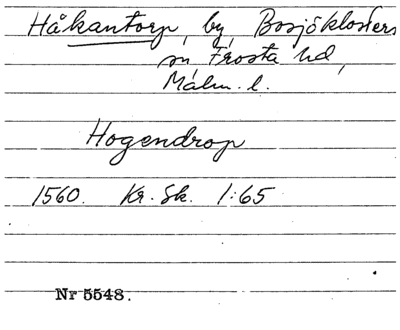 Håkantorp, by, Bosjöklosters
sn, Frosta hd,
Malm. l.
Hogendrop
1560. Kr. Sk. 1:65
Nr 5548.